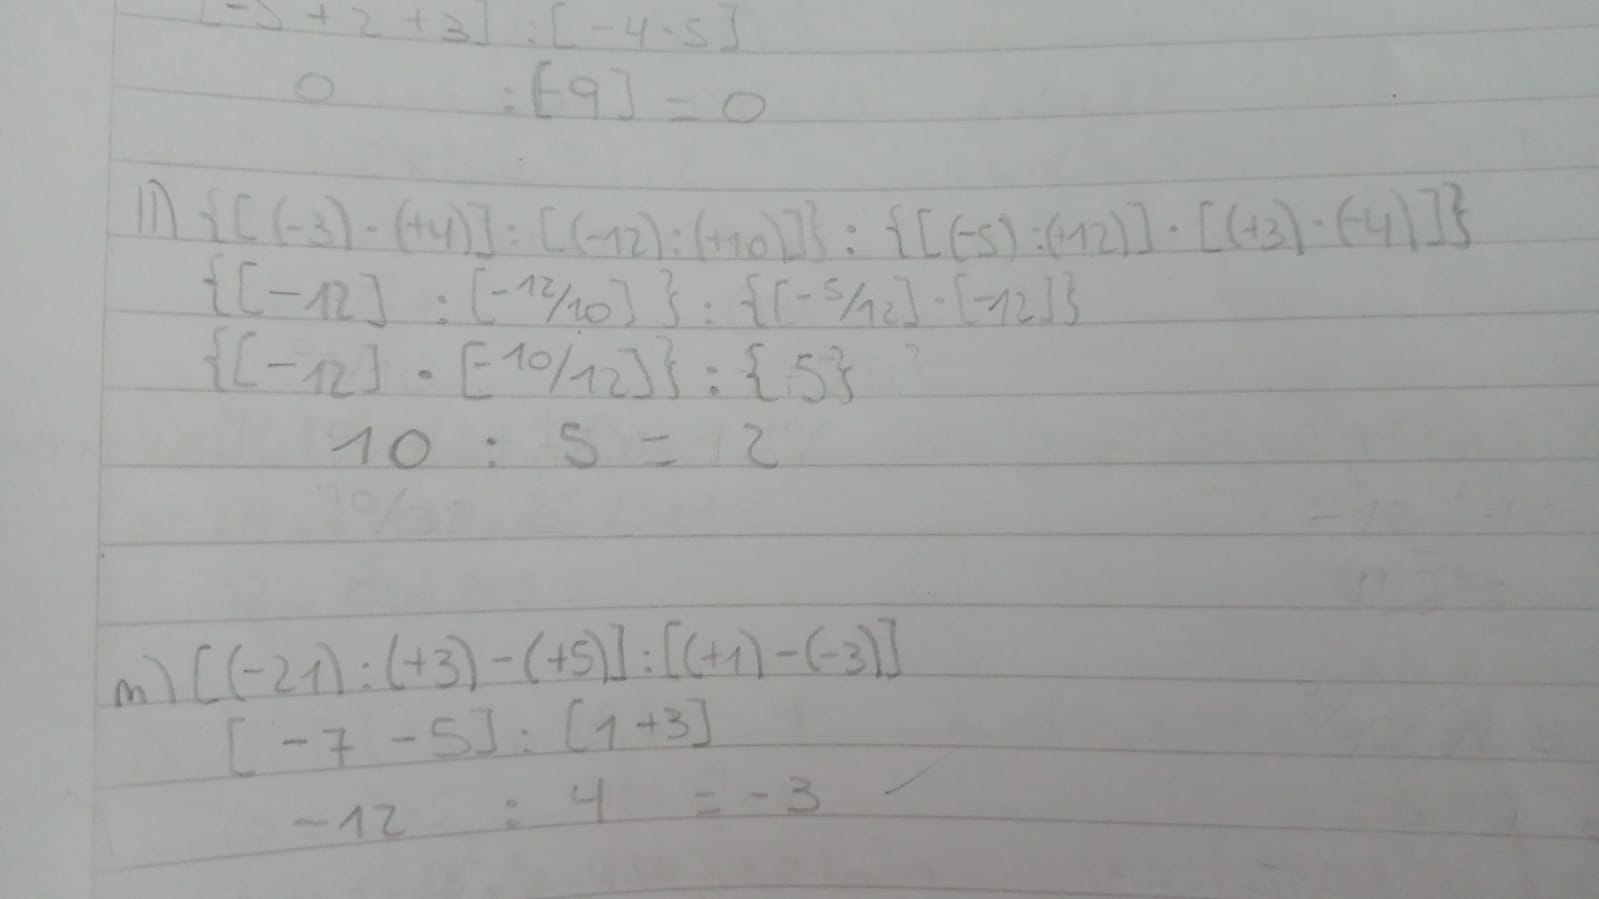 [-5 + 2 + 3] : [-4-5]
0 : [-9] = 0
ll) {[(-3) · (+4)] : [(-12) : (+10)]} : {[(-5) : (+12)] · [(+3) · (-4)]}
{[-12] : [-12/10]} : {[-5/12] · [-12]}
{[-12] · [-10/12]} : {5} ?
10 : 5 = 2
m) [(-21) : (+3) - (+5)] : [(+1) - (-3)]
[-7 - 5] : [1 + 3]
-12 : 4 = -3